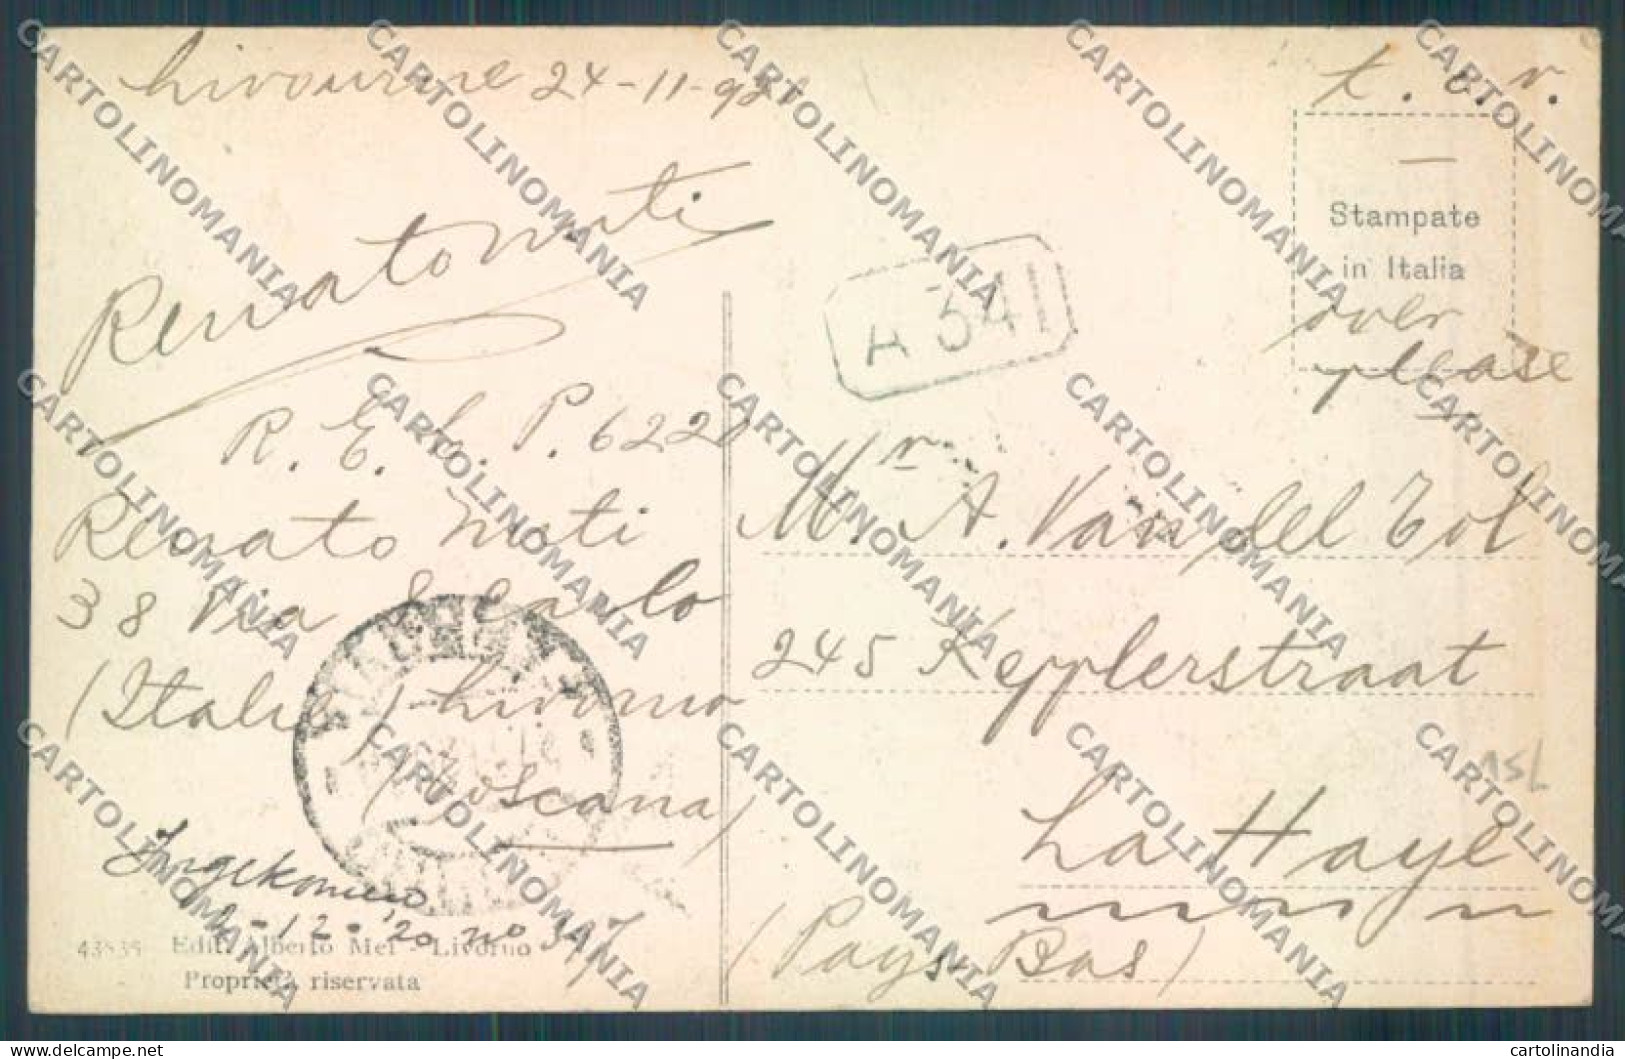 Livourne 24-11-920
t. c. v.
Stampate
in Italia
over
please
Renato Nuti
A 341
R. E. C. P. 622
Renato Nuti
38 Via S Carlo
(Italie) Livorno
(Toscana)
Mr A. Van del Tol
245 Kepplerstraat
La Haye
(Pays-Bas)
Ingekomen
-12-'20 no 347
43535 Edit. Alberto Mei - Livorno
Proprietà riservata
CARTOLINOMANIA
www.delcampe.net
cartolinandia